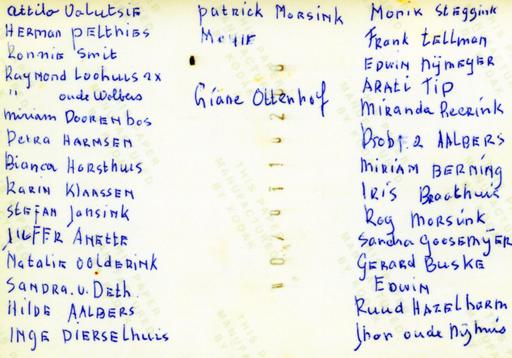 Attila Valutsie
Herman Pelthies
Ronnie Smit
Raymond Loohuis 2x
" oude Wolbers
Miriam Doorenbos
Petra Harmsen
Bianca Horsthuis
Karin Klaassen
Stefan Jansink
Juffr Anette
Natalie Oolderink
Sandra v. Deth.
Hilde Aalbers
Inge Dierselhuis
Patrick Morsink
Giane Ottenhof
Monik Steggink
Frank Tellman
Edwin Nijmeyer
Arati Tip
Miranda Reerink
Aalbers
Miriam Berning
Iris Braathuis
Roy Morsink
Sandra Goosemÿer
Gerard Buske
Edwin
Ruud Hazelhorm
oude Nijhuis